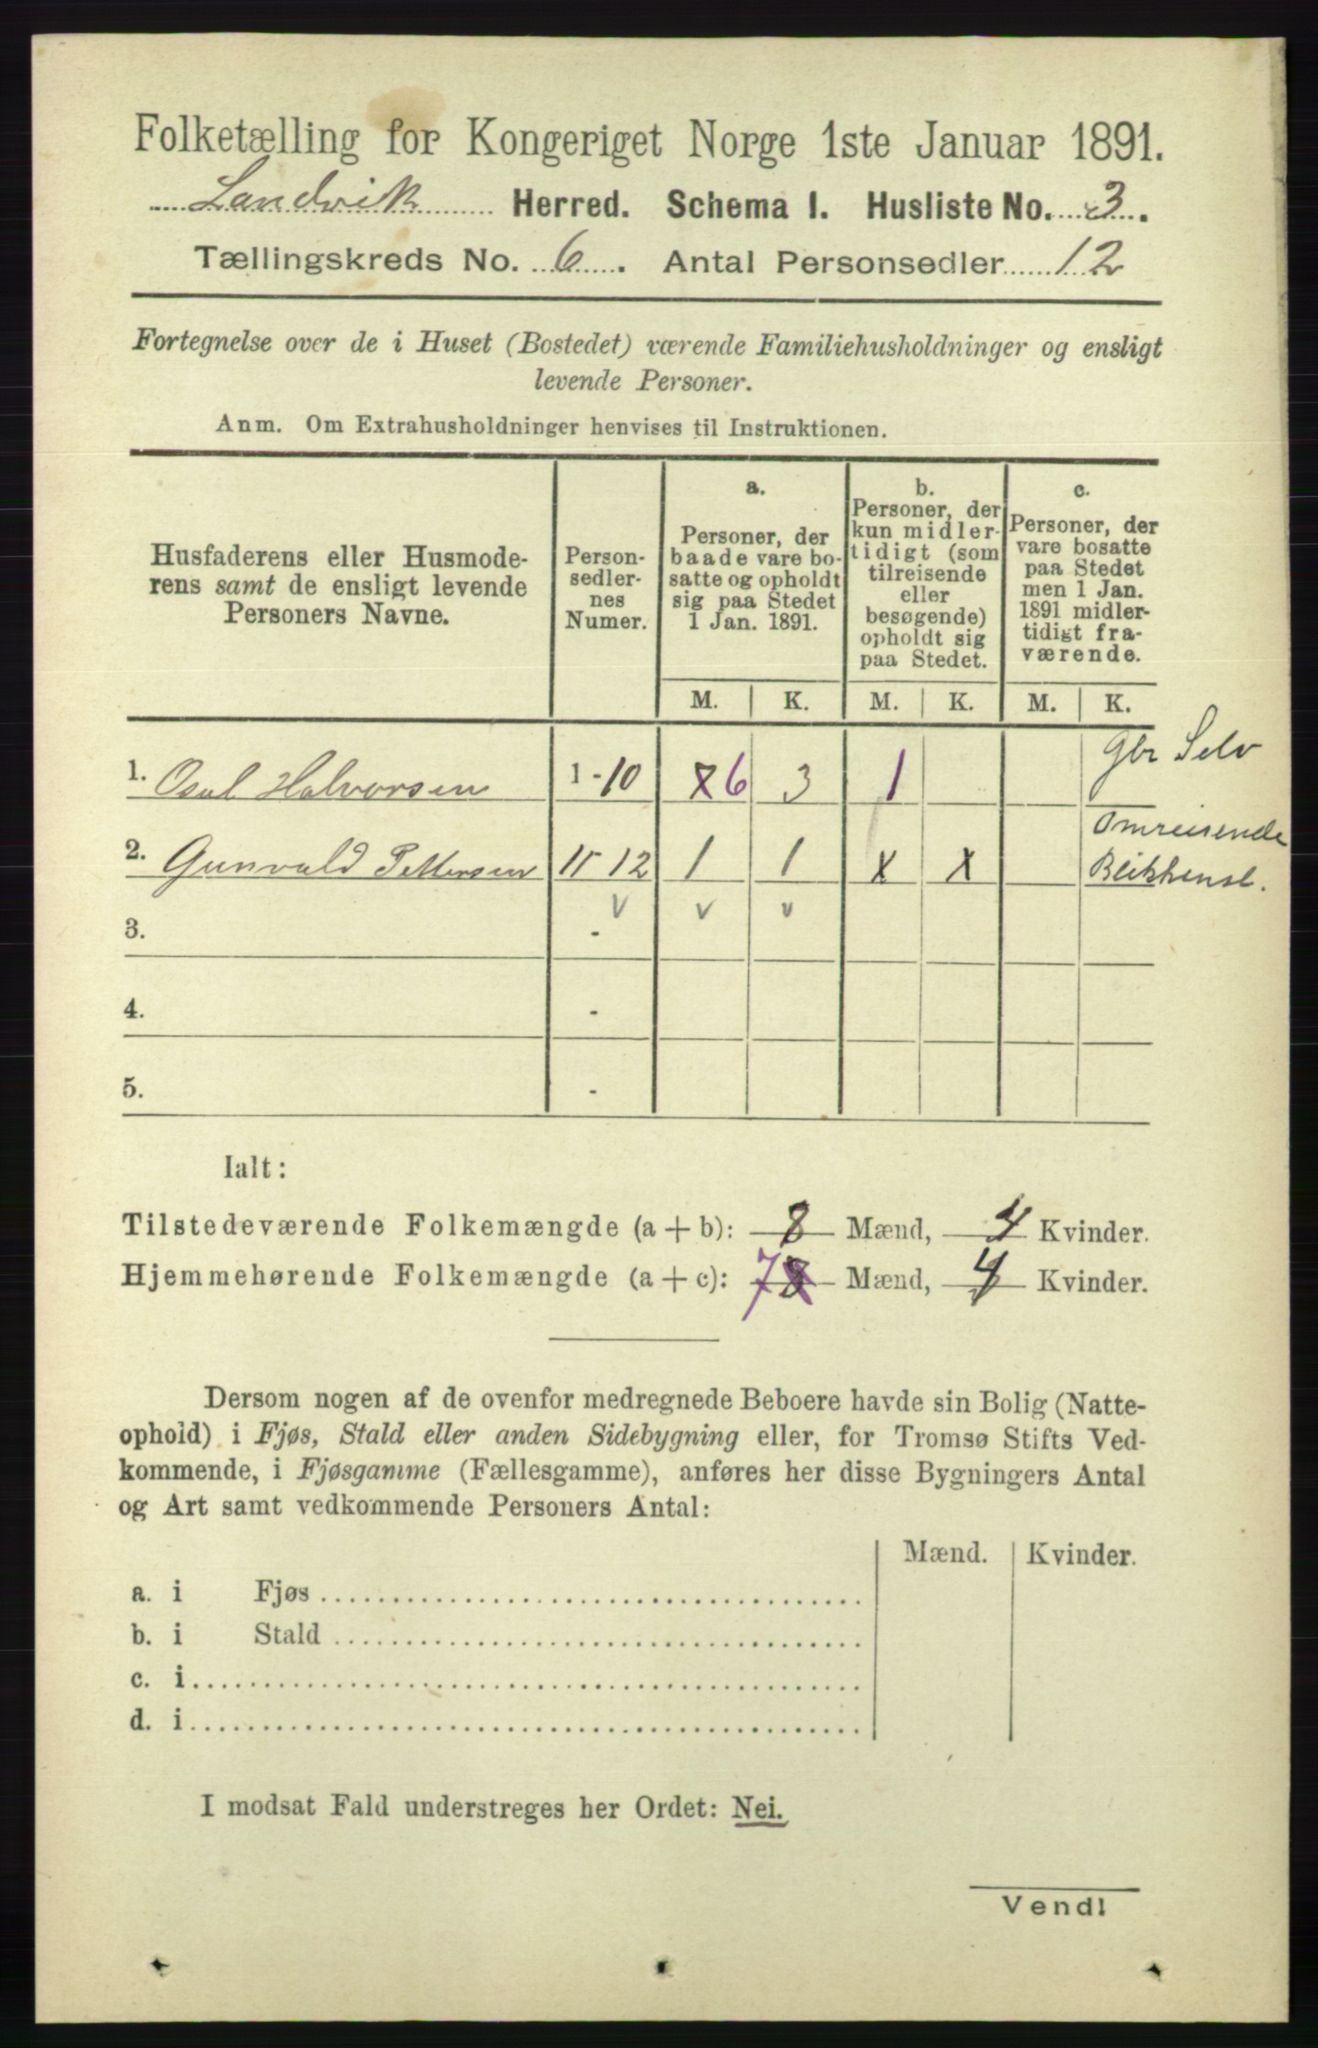 Folketælling for Kongeriget Norge 1ste Januar 1891.
Landvik Herred. Schema I. Husliste No. 3.
Tællingskreds No. 6. Antal Personsedler 12
Fortegnelse over de i Huset (Bostedet) værende Familiehusholdninger og ensligt
levende Personer.
Anm. Om Extrahusholdninger henvises til Instruktionen.
Husfaderens eller Husmode-
rens samt de ensligt levende
Personers Navne.
Person-
sedler-
nes
Numer.
a.
Personer, der
baade vare bo-
satte og opholdt
sig paa Stedet
1 Jan. 1891.
b.
Personer, der
kun midler-
tidigt (som
tilreisende
eller
besøgende)
opholdt sig
paa Stedet.
c.
Personer, der
vare bosatte
paa Stedet
men 1 Jan.
1891 midler-
tidigt fra-
værende.
M. K. M. K. M. K.
1. Osul Halvorsen 1-10 6 3 1 Gbr Selv
2. Gunvald Pettersen 11-12 1 1 x x Omreisende
Blikkensl.
v v v
3. -
4. -
5. -
Ialt:
Tilstedeværende Folkemængde (a + b): 8 Mænd, 4 Kvinder.
Hjemmehørende Folkemængde (a + c): 7 8 Mænd, 4 Kvinder.
Dersom nogen af de ovenfor medregnede Beboere havde sin Bolig (Natte-
ophold) i Fjøs, Stald eller anden Sidebygning eller, for Tromsø Stifts Ved-
kommende, i Fjøsgamme (Fællesgamme), anføres her disse Bygningers Antal
og Art samt vedkommende Personers Antal:
Mænd. Kvinder.
a. i Fjøs
b. i Stald
c. i
d. i
I modsat Fald understreges her Ordet: Nei.
Vend!